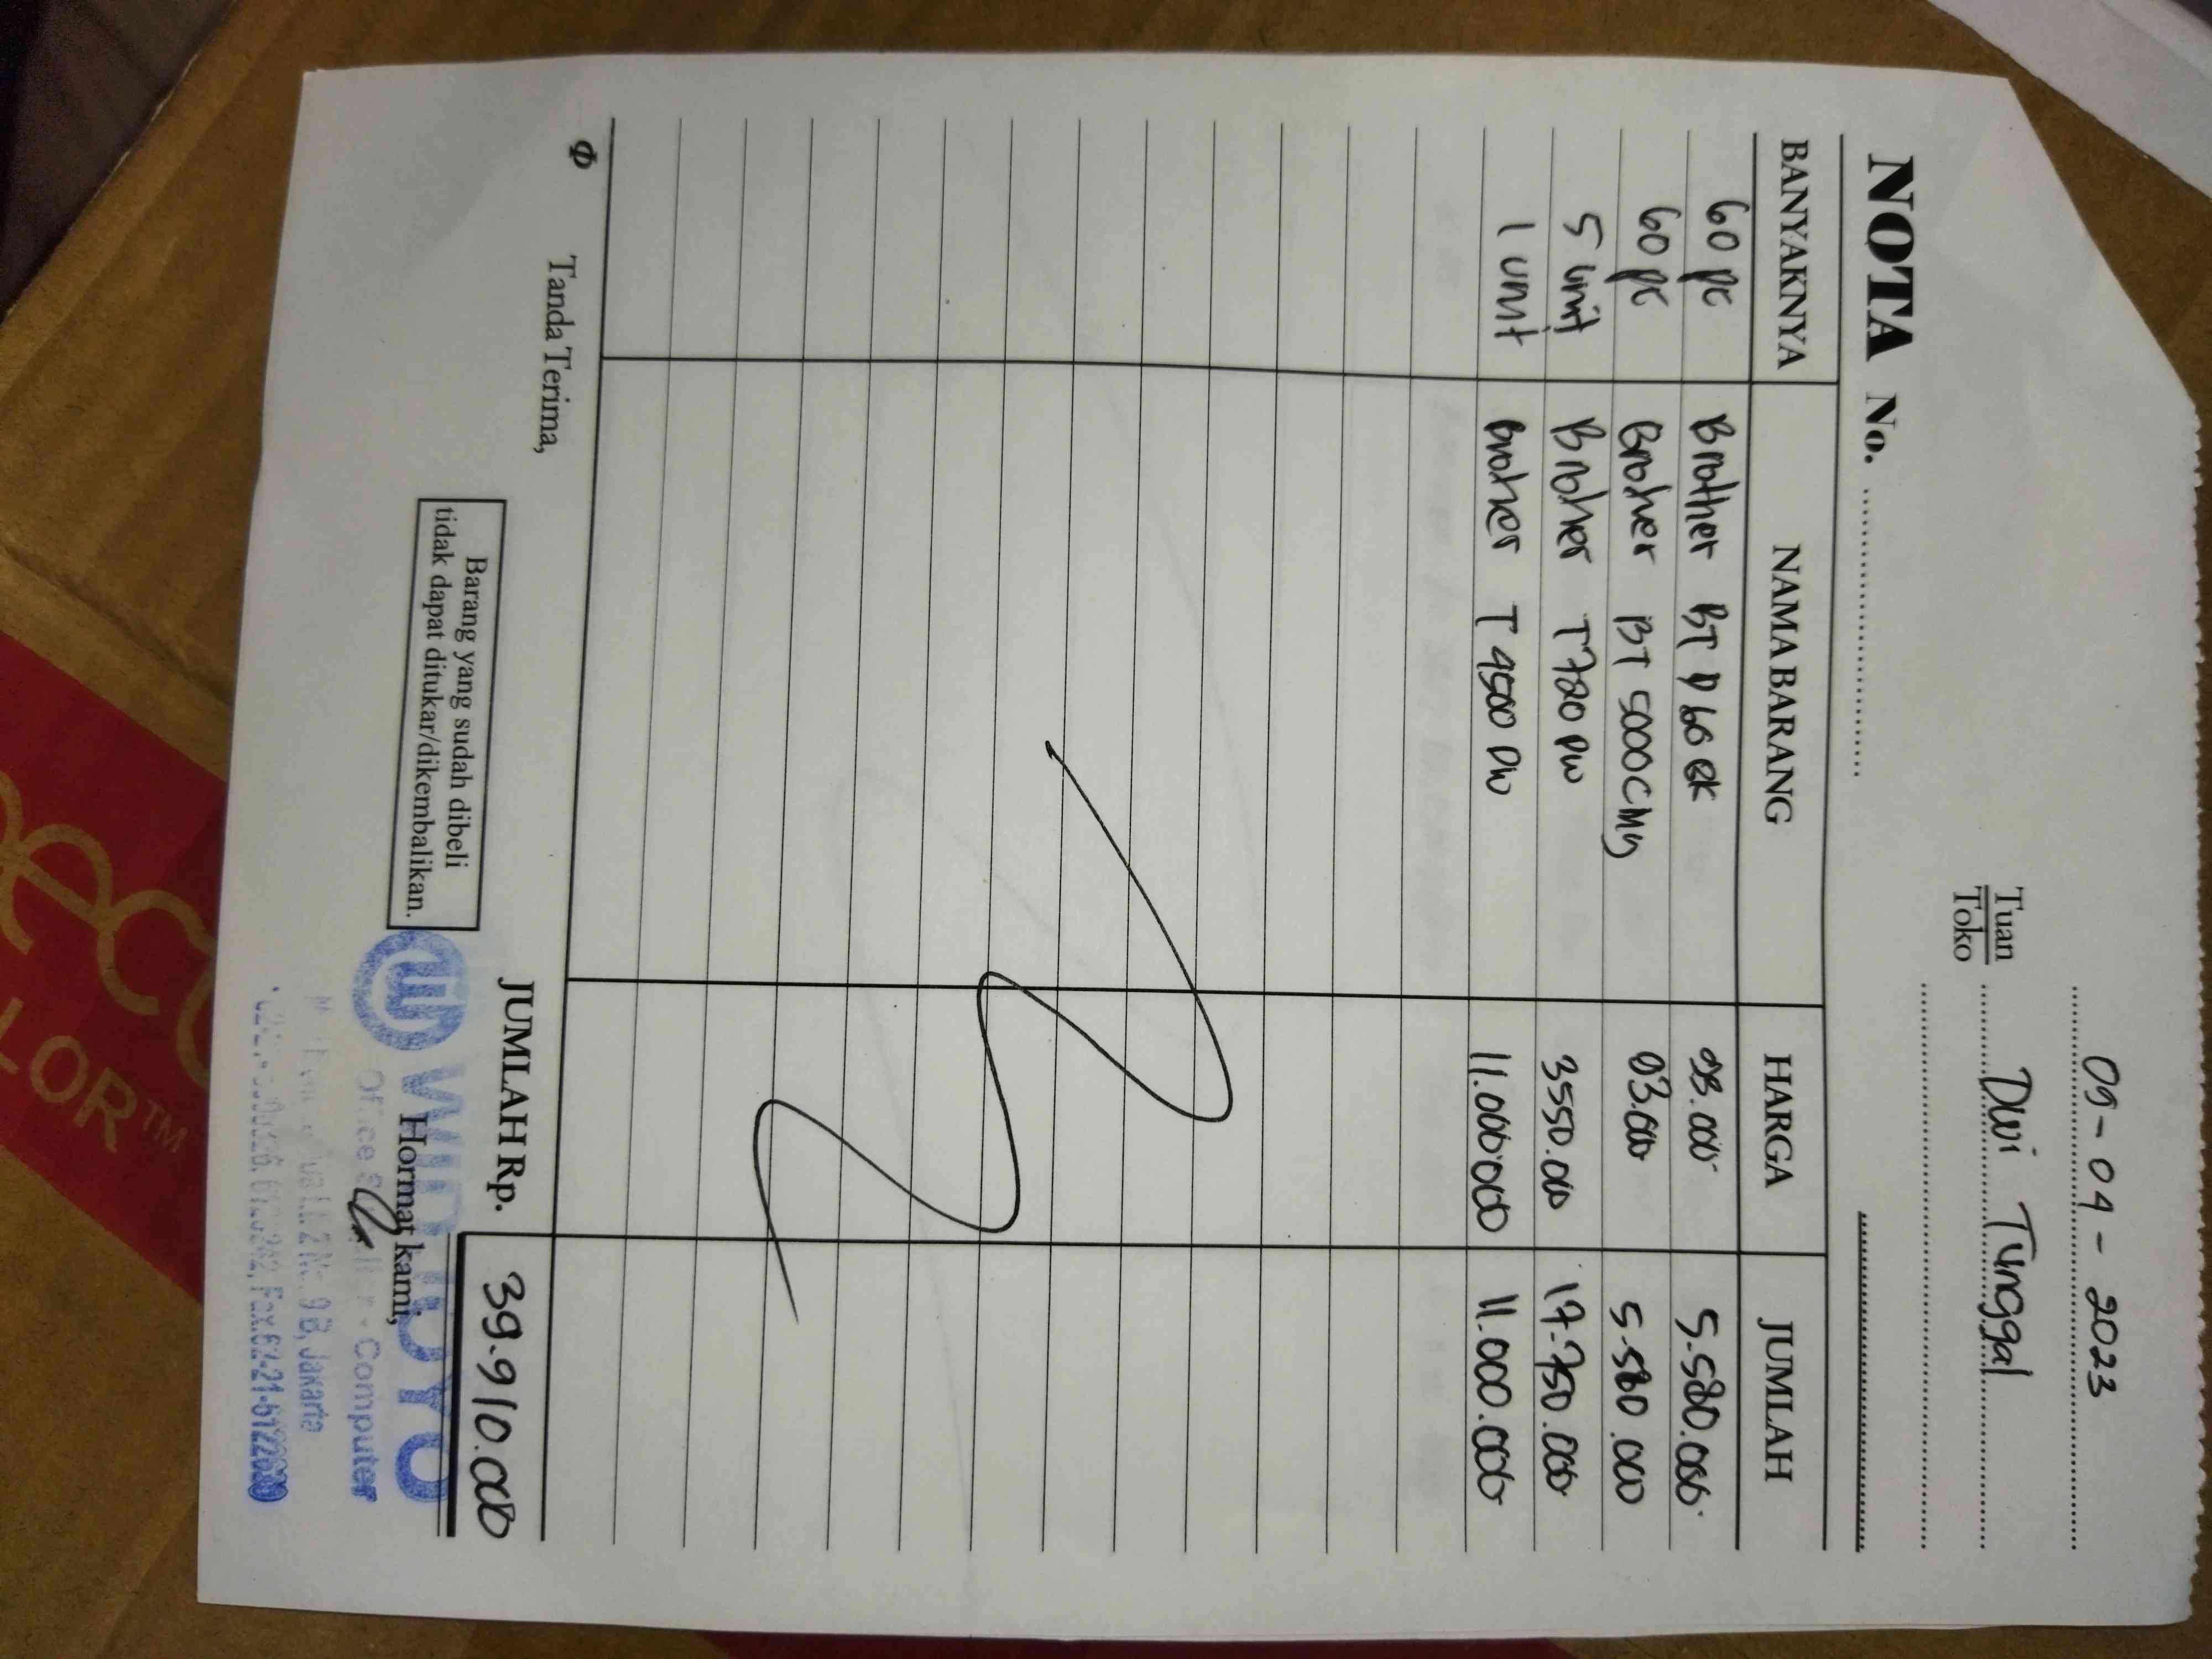 09-04-2023
Tuan
Toko
Dwi Tunggal
NOTA No.
BANYAKNYA NAMA BARANG HARGA JUMLAH
60 pc Brother BT D 60 BK 93.000 5.580.000
60 pc Broher BT 5000 CMY 93.000 5.580.000
5 unit Broher T720 DW 3550.000 17.750.000
1 unit Broher T4500 DW 11.000.000 11.000.000
JUMLAH Rp. 39.910.000
Φ Tanda Terima,
Barang yang sudah dibeli
tidak dapat ditukar/dikembalikan.
Hormat kami,
Office - Computer
No. 9 B, Jakarta
Fax.62-21-
LOR™